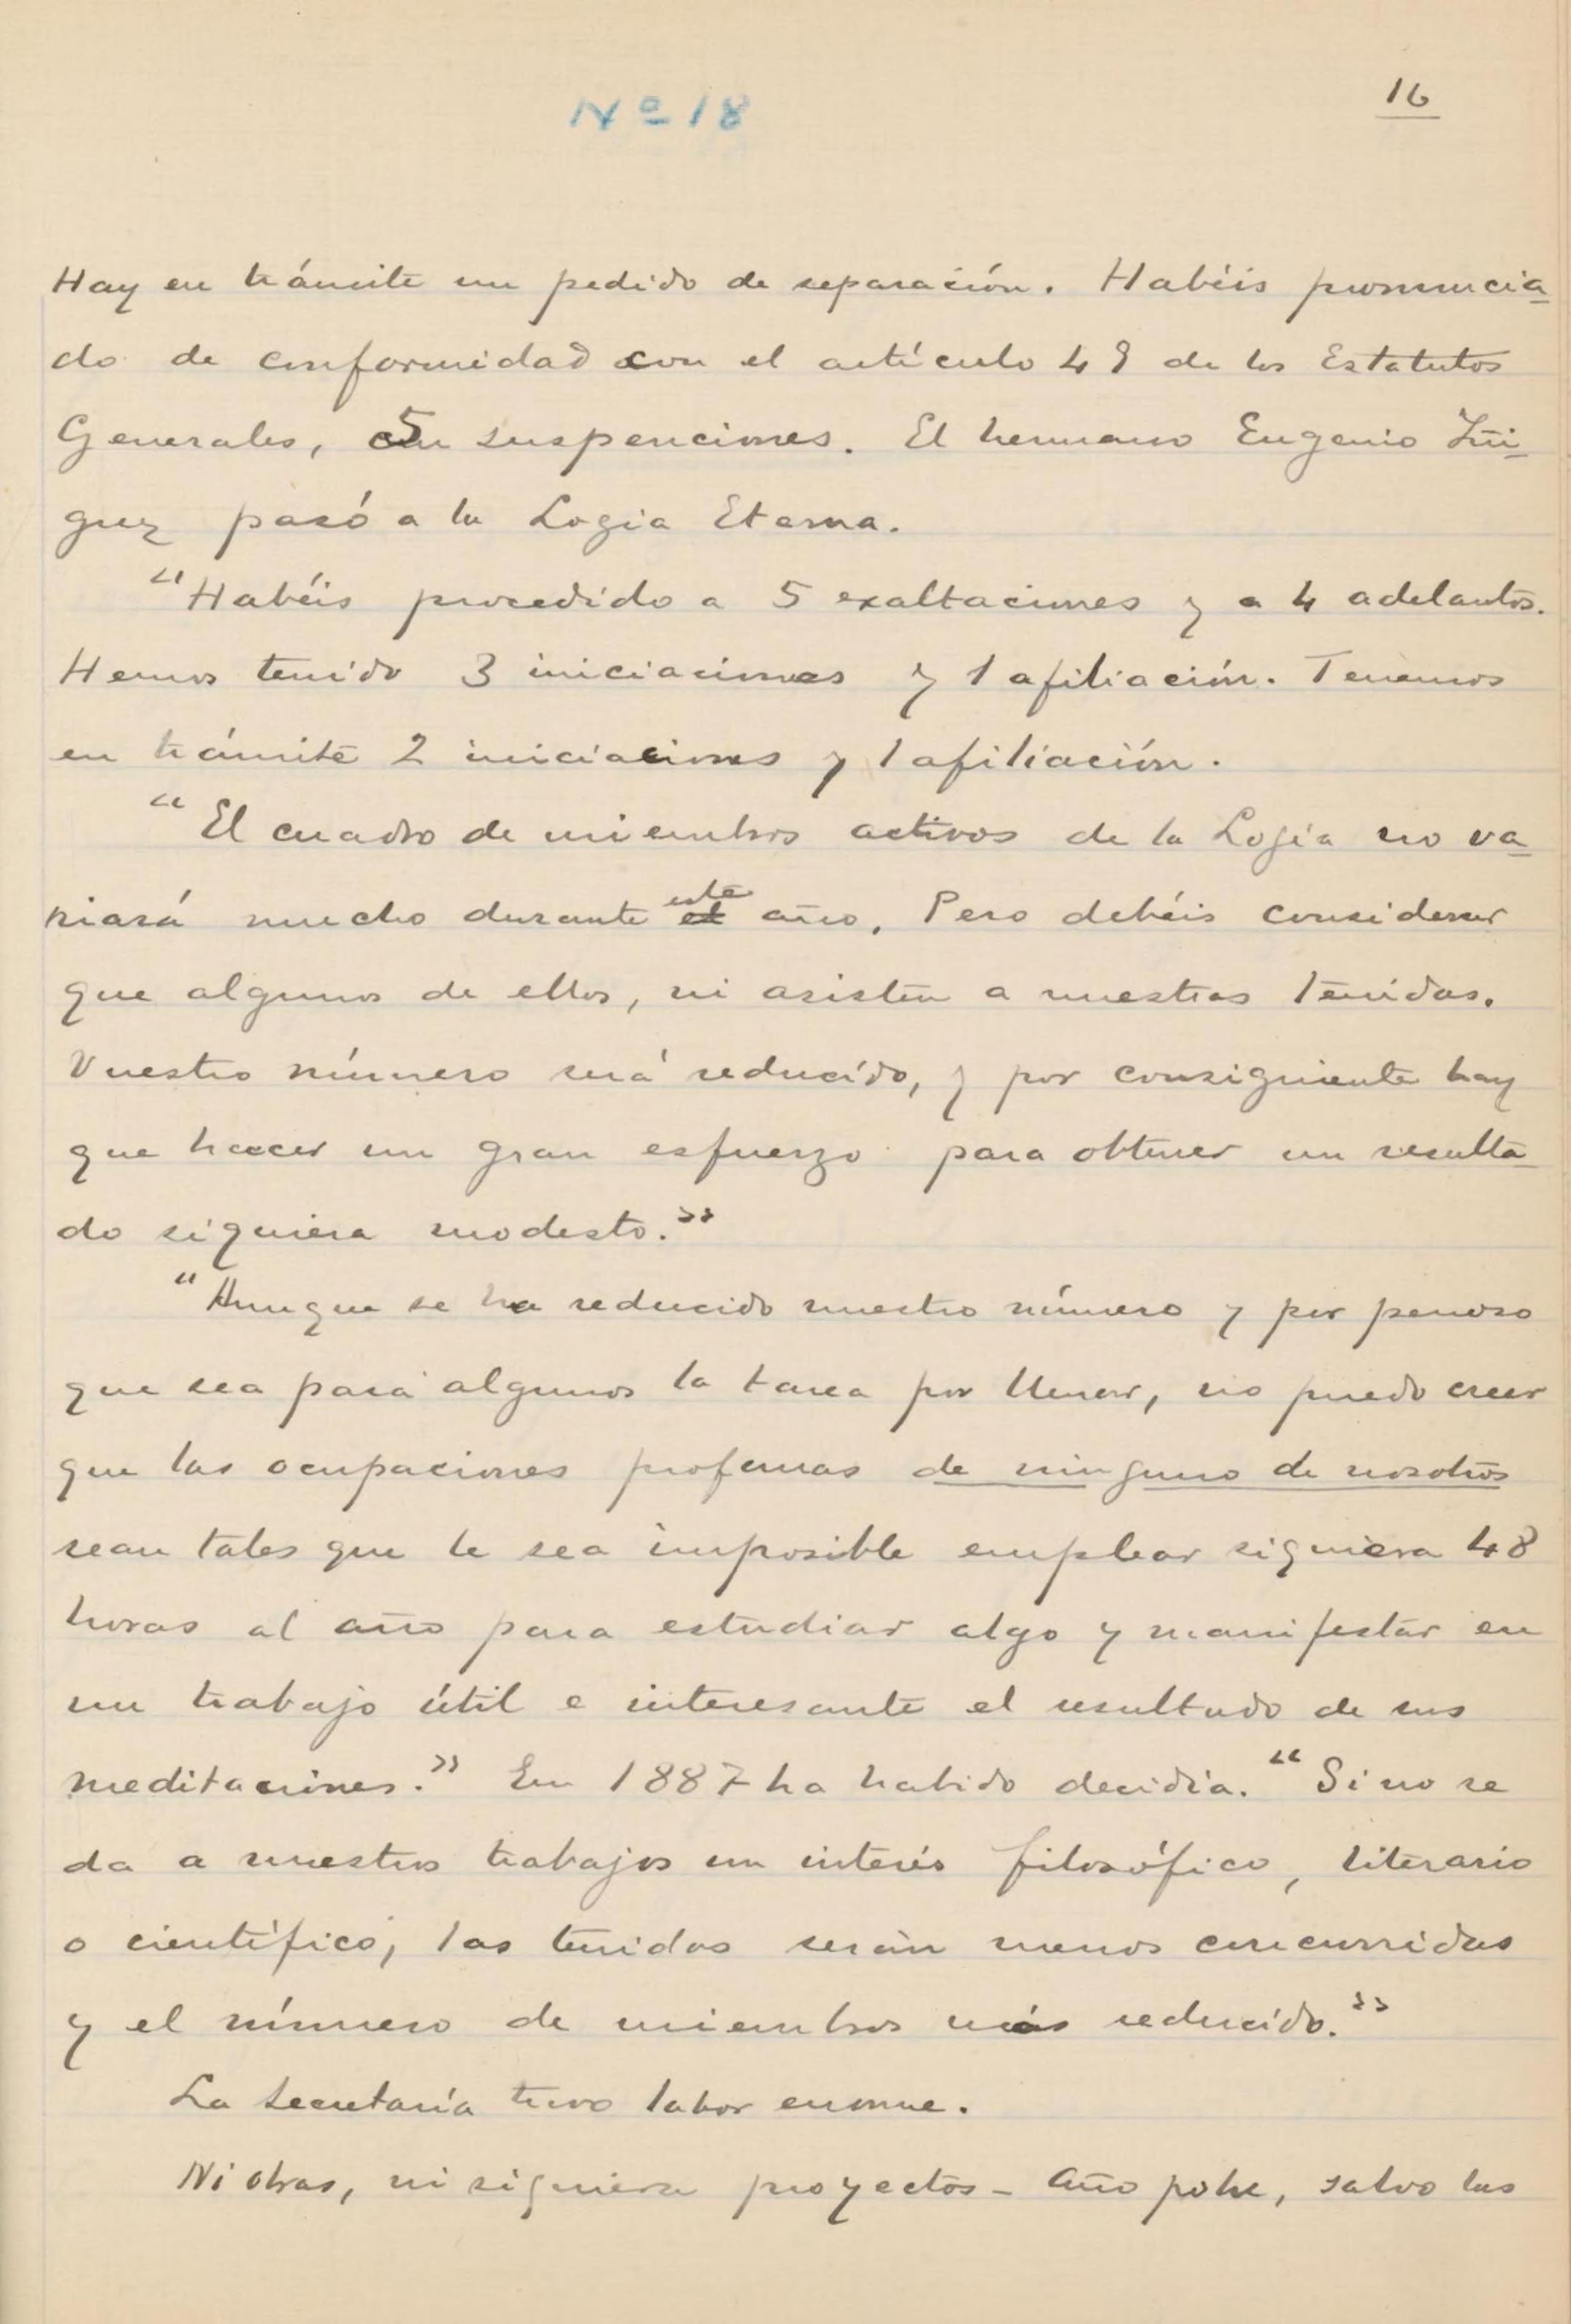 Nº 18
16
Hay en trámite un pedido de separación. Habéis pronuncia
do de conformidad con el artículo 48 de los Estatutos
Generales, 5 suspenciones. El hermano Eugenio Iñi-
guez pasó a la Logia Eterna.
"Habéis procedido a 5 exaltaciones y a 4 adelantos.
Hemos tenido 3 iniciaciones y 1 afiliación. Tenemos
en trámite 2 iniciaciones y 1 afiliación.
"El cuadro de miembros activos de la Logia no va
riará mucho durante este año. Pero debéis considerar
que algunos de ellos, ni asisten a nuestras tenidas.
Vuestro número será reducido, y por consiguiente hay
que hacer un gran esfuerzo para obtener un resulta
do siquiera modesto."
"Aunque se ha reducido nuestro número y por penoso
que sea para algunos la tarea por llenar, no puedo creer
que las ocupaciones profanas de ninguno de nosotros
sean tales que le sea imposible emplear siquiera 48
horas al año para estudiar algo y manifestar en
un trabajo útil e interesante el resultado de sus
meditaciones." En 1887 ha habido decidia. "Si no se
da a nuestros trabajos un interés filosófico, literario
o científico, las tenidas serán menos concurridas
y el número de miembros más reducido."
La secretaría tuvo labor enorme.
Ni obras, ni siquiera proyectos - Año pobre, salvo las